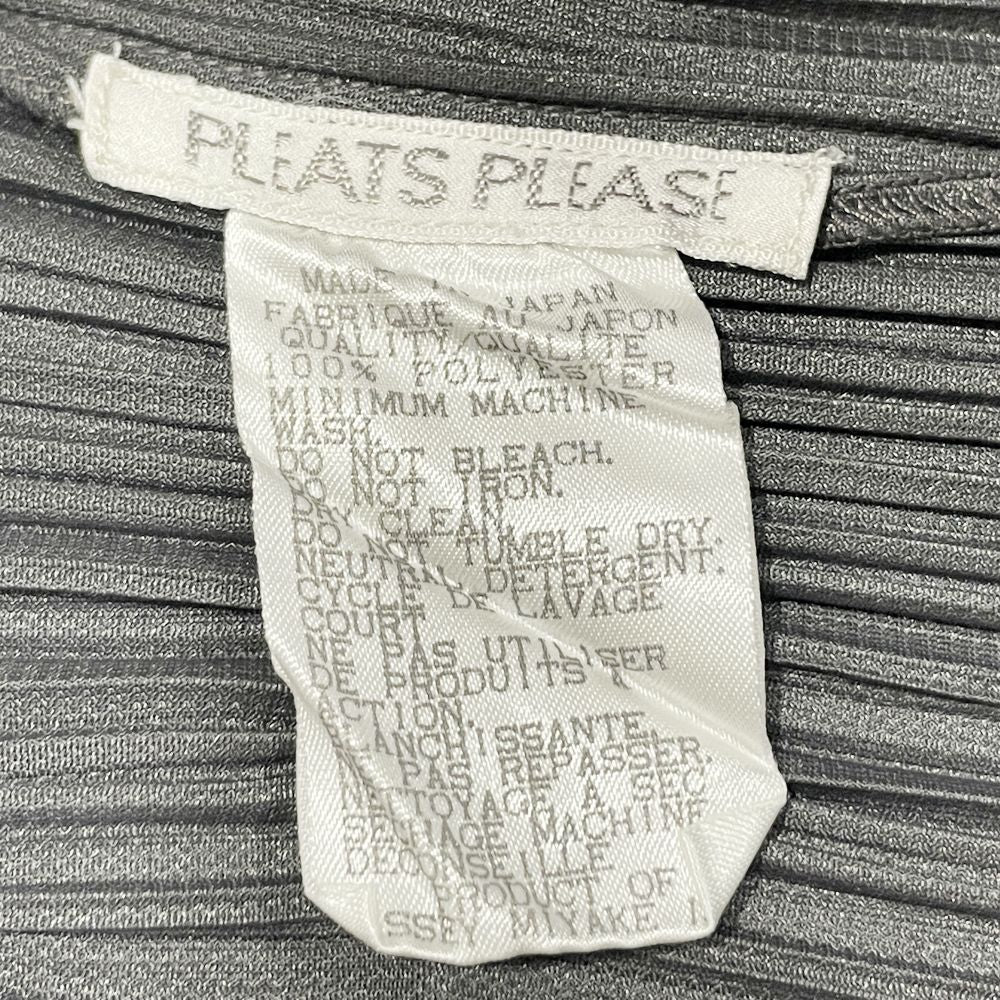 PLEATS PLEASE
MADE IN JAPAN
FABRIQUE AU JAPON
QUALITY/QUALITE
100% POLYESTER
MINIMUM MACHINE
WASH.
DO NOT BLEACH.
DO NOT IRON.
DRY CLEAN
DO NOT TUMBLE DRY.
NEUTER DETERGENT.
CYCLE DE LAVAGE
COURT
NE PAS UTILISER
DE PRODUITS
ACTION.
BLANCHISSANTE.
NE PAS REPASSER.
NETTOYAGE A SEC
SECHAGE MACHINE
DECONSEILLE
PRODUCT OF
SSEY MIYAKE I